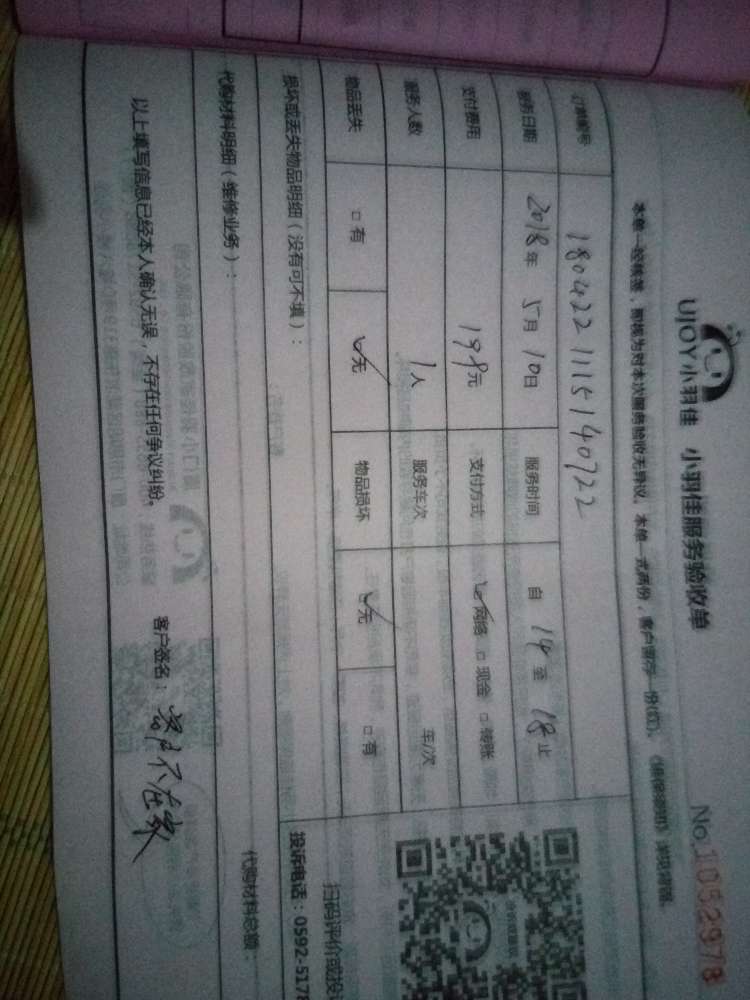 UJOY小羽佳 小羽佳服务验收单
No.1052978
本单一经核签，即视为对本次服务验收无异议，本单一式两份，客户留存一份(红)。
订单编号 1804221115140722
服务日期 2018年 5月 10日 服务时间 自 14 至 18 止
支付费用 199元 支付方式 ✓网络 □现金 □转账
服务人数 1人 服务车次 车/次
物品丢失 □有 ✓无 物品损坏 ✓无 □有
损坏或丢失物品明细（没有可不填）：
扫码评价或投
投诉电话：0592-5178
代购材料明细（维修业务）：
代购材料总额：
以上填写信息已经本人确认无误，不存在任何争议纠纷。 客户签名：客户不在家